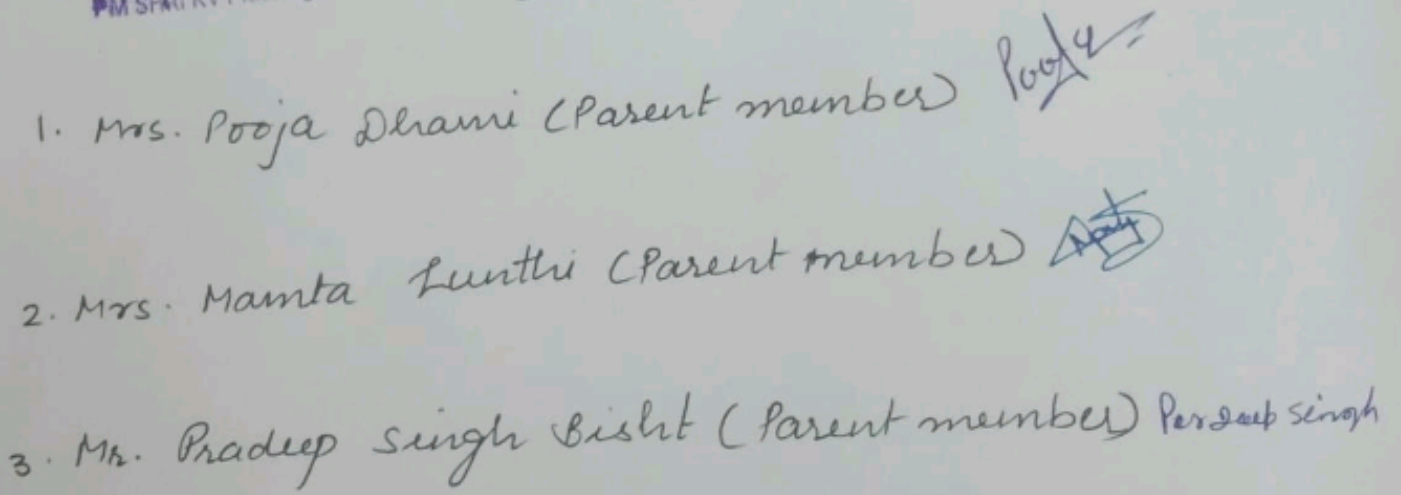 PM SHRI KV
1. Mrs. Pooja Dhami (Parent member) Pooja
2. Mrs. Mamta Lunthi (Parent member)
3. Mr. Pradeep Singh Bisht (Parent member) Perdeep singh